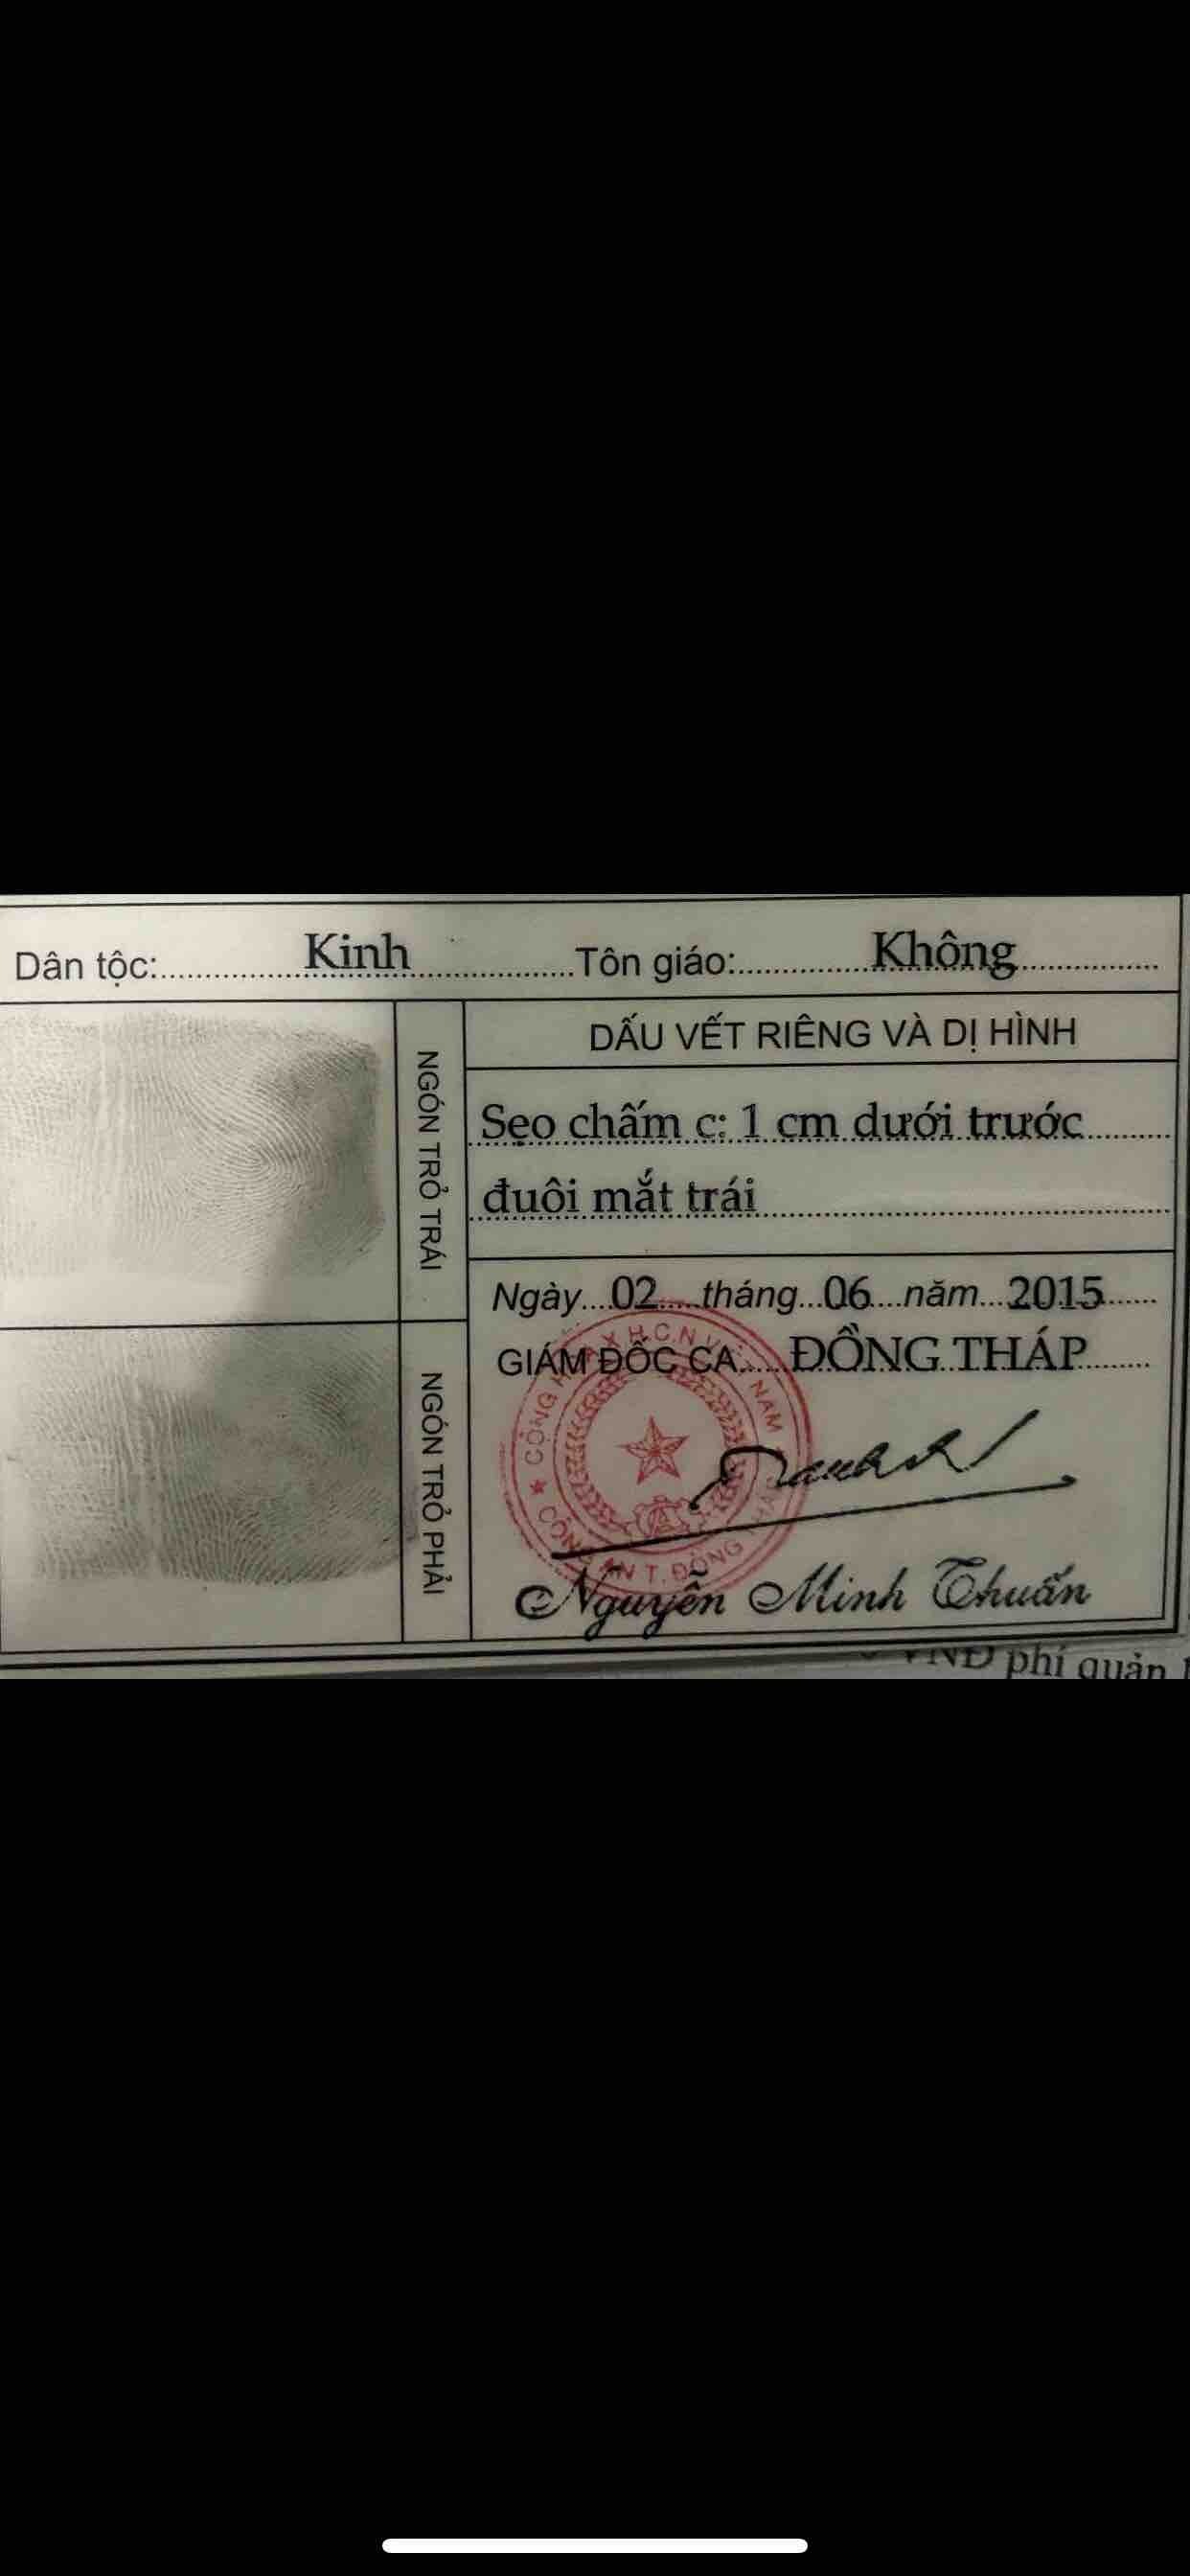 Dân tộc: Kinh Tôn giáo: Không
NGÓN TRỎ TRÁI
DẤU VẾT RIÊNG VÀ DỊ HÌNH
Sẹo chấm c: 1 cm dưới trước
đuôi mắt trái
Ngày 02 tháng 06 năm 2015
GIÁM ĐỐC CA ĐỒNG THÁP
NGÓN TRỎ PHẢI
Nguyễn Minh Thuấn
VNĐ phí quản